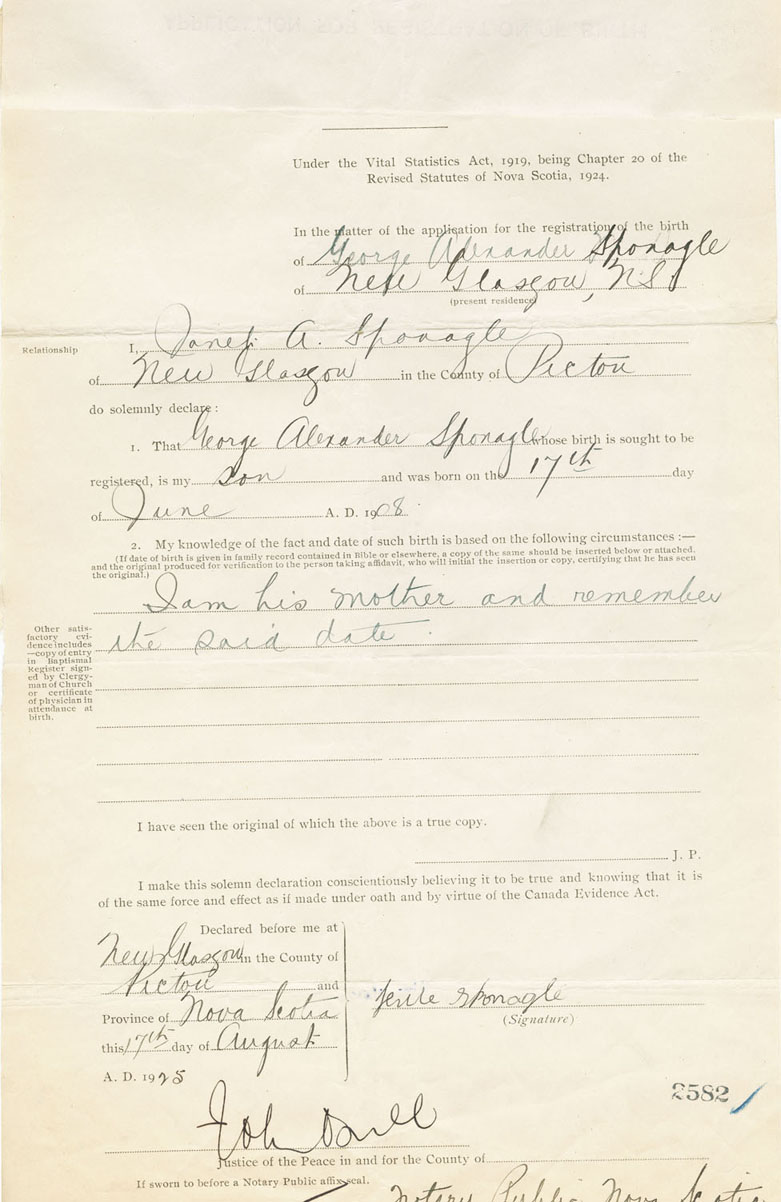 Under the Vital Statistics Act, 1919, being Chapter 20 of the
Revised Statutes of Nova Scotia, 1924.
In the matter of the application for the registration of the birth
of George Alexander Sponagle
of New Glasgow, N.S.
(present residence)
Relationship
I, A. Sponagle
of New Glasgow in the County of Pictou
do solemnly declare:
1. That George Alexander Sponagle whose birth is sought to be
registered, is my son and was born on the 17th day
of June A. D. 1908.
2. My knowledge of the fact and date of such birth is based on the following circumstances :—
(If date of birth is given in family record contained in Bible or elsewhere, a copy of the same should be inserted below or attached,
and the original produced for verification to the person taking affidavit, who will initial the insertion or copy, certifying that he has seen
the original.)
I am his mother and remember
the said date.
Other satis-
factory evi-
dence includes
—copy of entry
in Baptismal
Register sign-
ed by Clergy-
man of Church
or certificate
of physician in
attendance at
birth.
I have seen the original of which the above is a true copy.
J. P.
I make this solemn declaration conscientiously believing it to be true and knowing that it is
of the same force and effect as if made under oath and by virtue of the Canada Evidence Act.
Declared before me at
New Glasgow in the County of
Pictou and
Province of Nova Scotia
this 17th day of August
A. D. 1925
Sponagle
(Signature)
2582
John
Justice of the Peace in and for the County of
If sworn to before a Notary Public affix seal.
Notary Public Nova Scotia